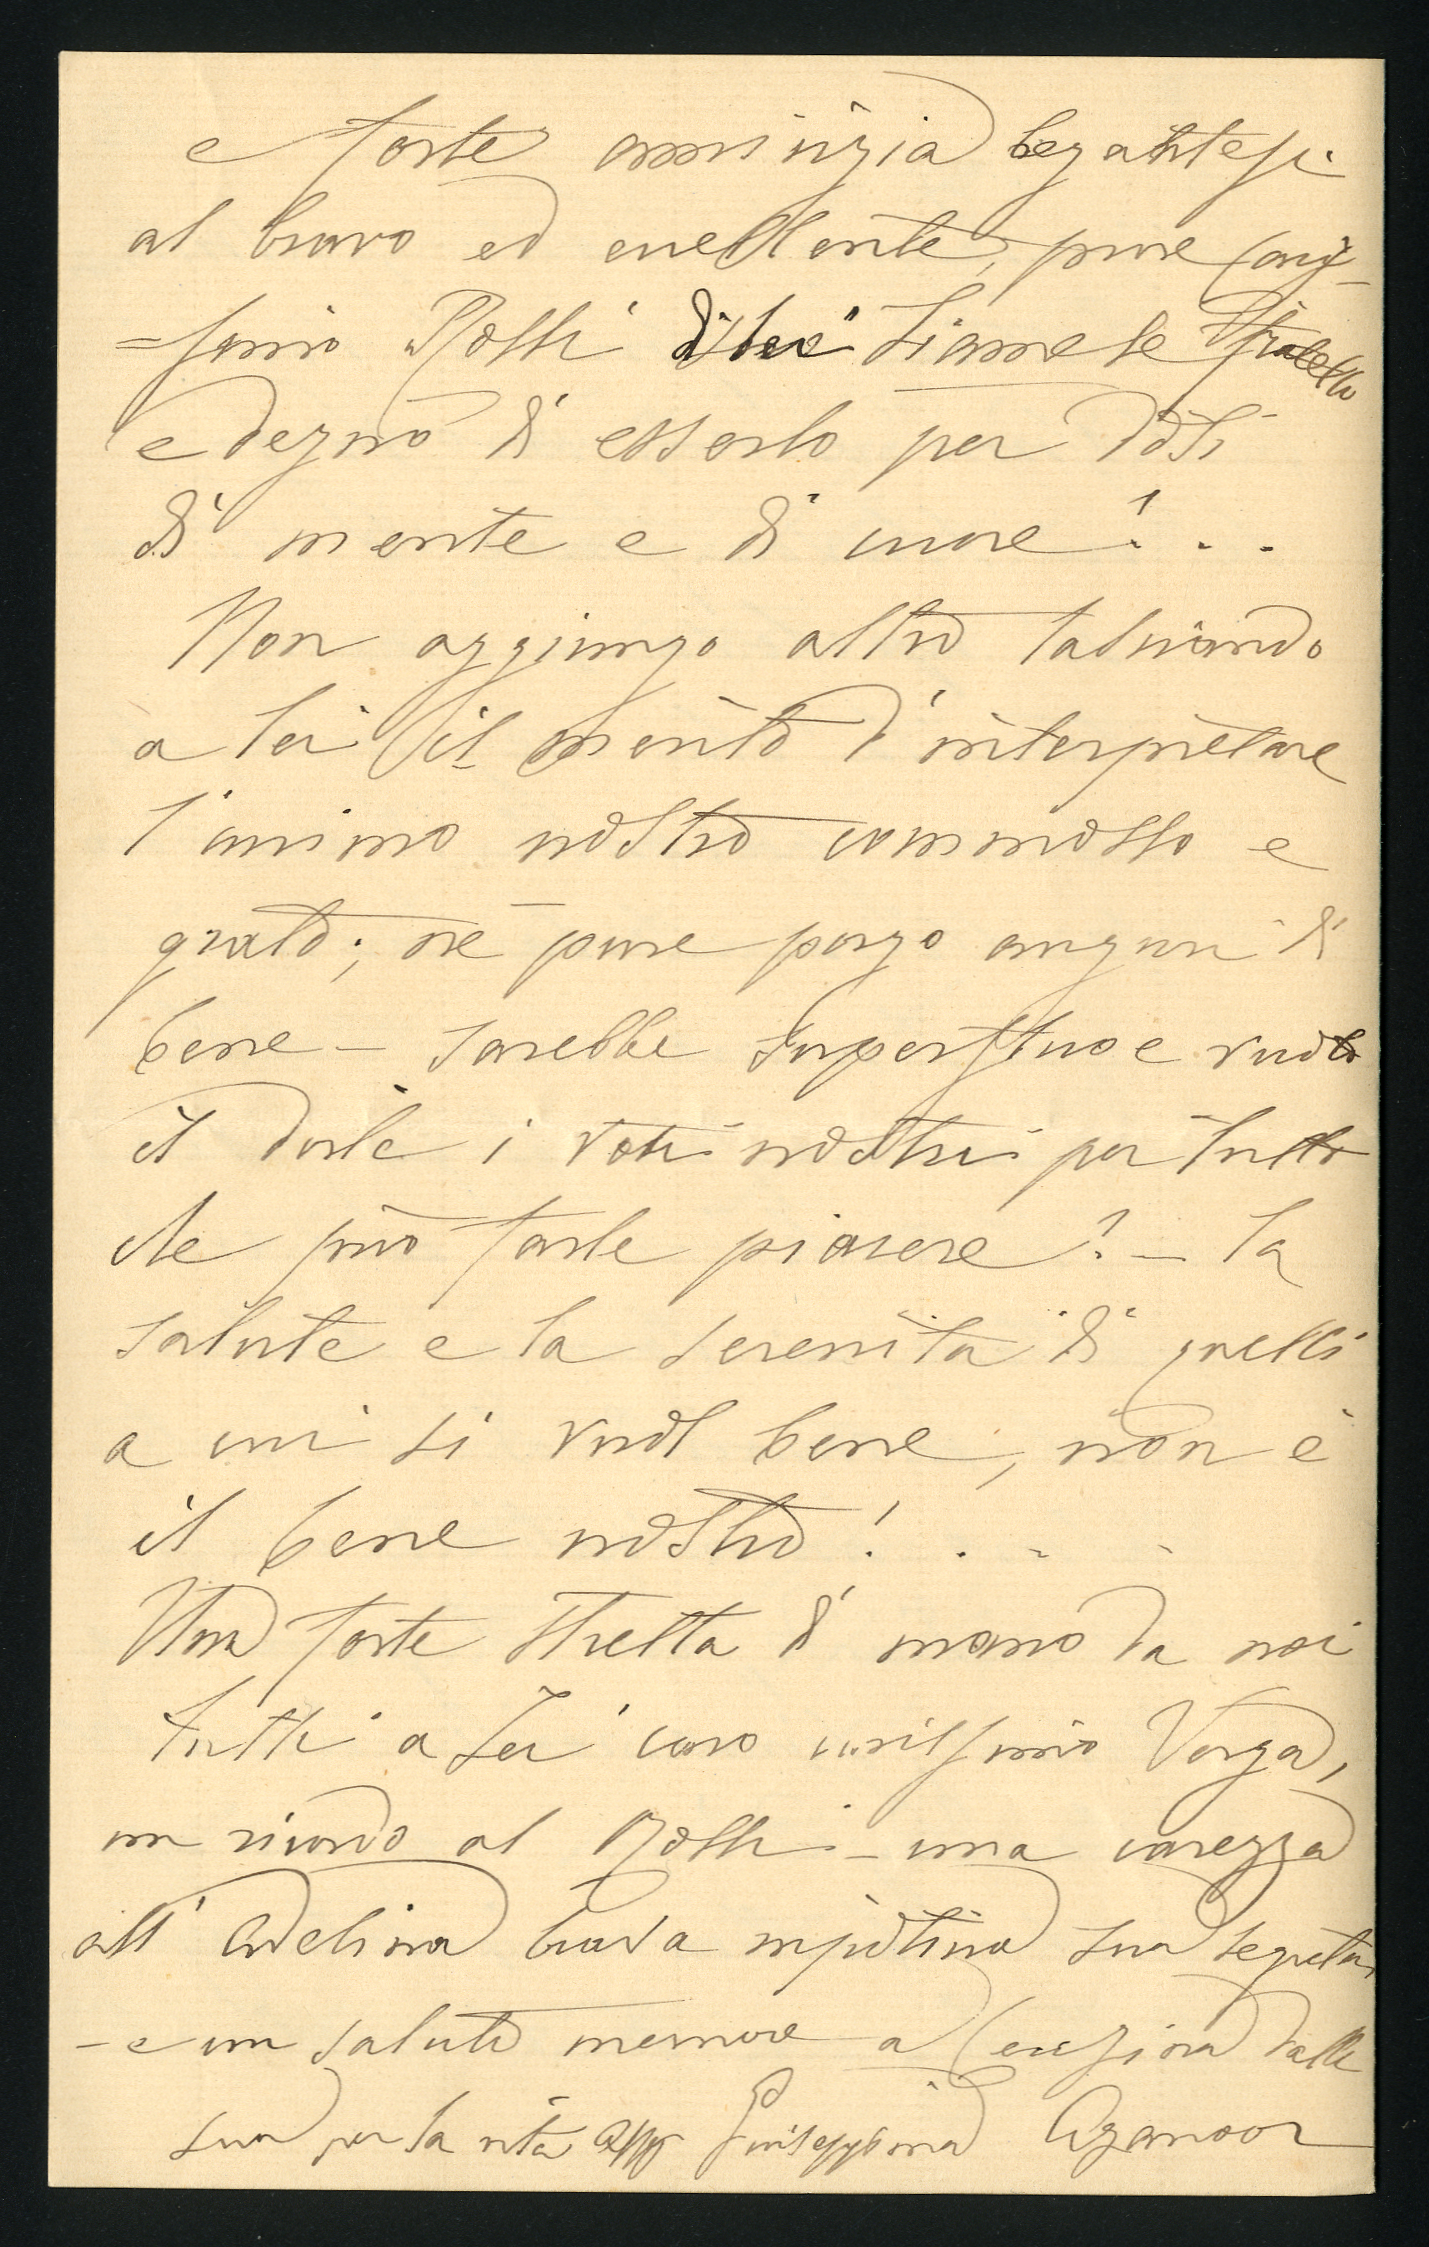 e forte amicizia legantesi
al bravo ed eccellente, pure caris
=simo Rossi di Lei siamese fratello
e degno di esserlo per doti
di mente e di cuore! . .
Non aggiungo altro lasciando
a lei il merito d'interpretare
l'animo nostro commosso e
grato; nè pure porgo auguri di
bene – sarebbe superfluo e vuoto
il darle i voti nostri per tutto
che può farle piacere! – La
salute e la serenità di quelli
a cui si vuol bene, non è
il bene nostro! . . .
Una forte stretta di mano da noi
tutti a Lei caro carissimo Verga,
un ricordo al Rossi – una carezza
all'Adelina brava nipotina sua segreta
– e un saluto memore a dalla
sua per la vita Aff Giuseppina Aganoor